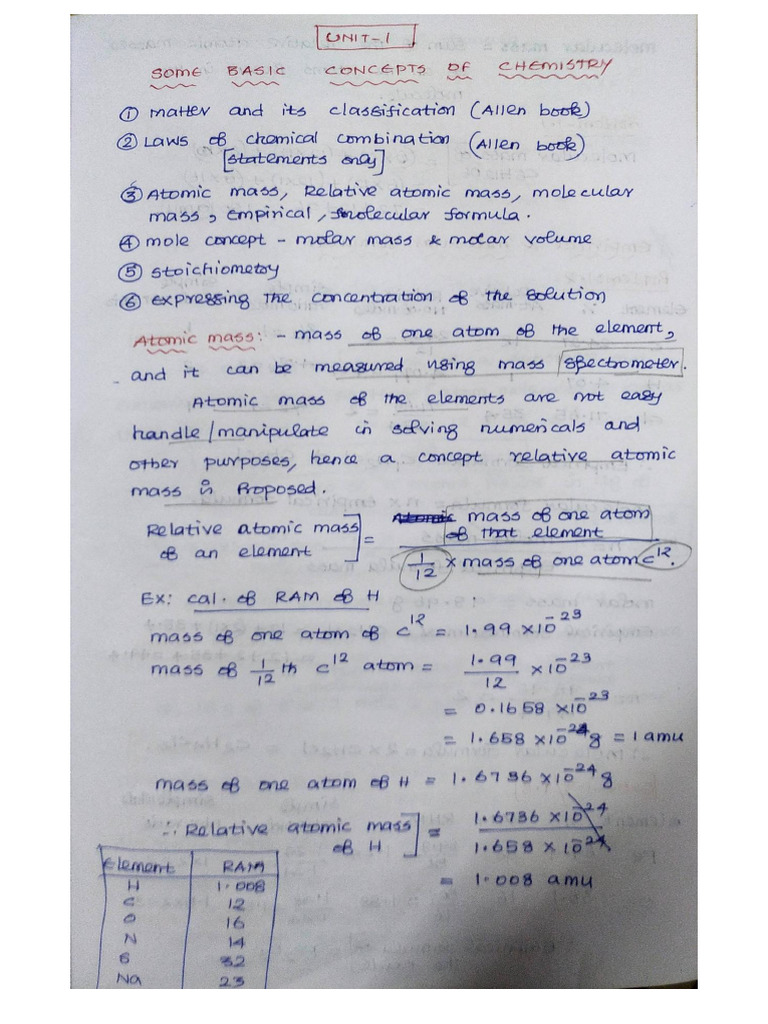 UNIT-1
SOME BASIC CONCEPTS OF CHEMISTRY
① matter and its classification (Allen book)
② Laws of chemical combination (Allen book)
[statements only]
③ Atomic mass, Relative atomic mass, molecular
mass, empirical, molecular formula.
④ mole concept - molar mass & molar volume
⑤ stoichiometry
⑥ expressing the concentration of the solution
Atomic mass: - mass of one atom of the element,
and it can be measured using mass spectrometer.
Atomic mass of the elements are not easy
handle/manipulate in solving numericals and
other purposes, hence a concept relative atomic
mass is proposed.
Relative atomic mass of an element] = mass of one atom of that element / 1/12 × mass of one atom C¹².
Ex: cal. of RAM of H
mass of one atom of C¹² = 1.99 × 10⁻²³
mass of 1/12 th C¹² atom = 1.99/12 × 10⁻²³
= 0.1658 × 10⁻²³
= 1.658 × 10⁻²⁴ g = 1 amu
mass of one atom of H = 1.6736 × 10⁻²⁴ g
∴ Relative atomic mass of H] = 1.6736 × 10⁻²⁴ / 1.658 × 10⁻²⁴
= 1.008 amu
Element RAM
H 1.008
C 12
O 16
N 14
S 32
Na 23